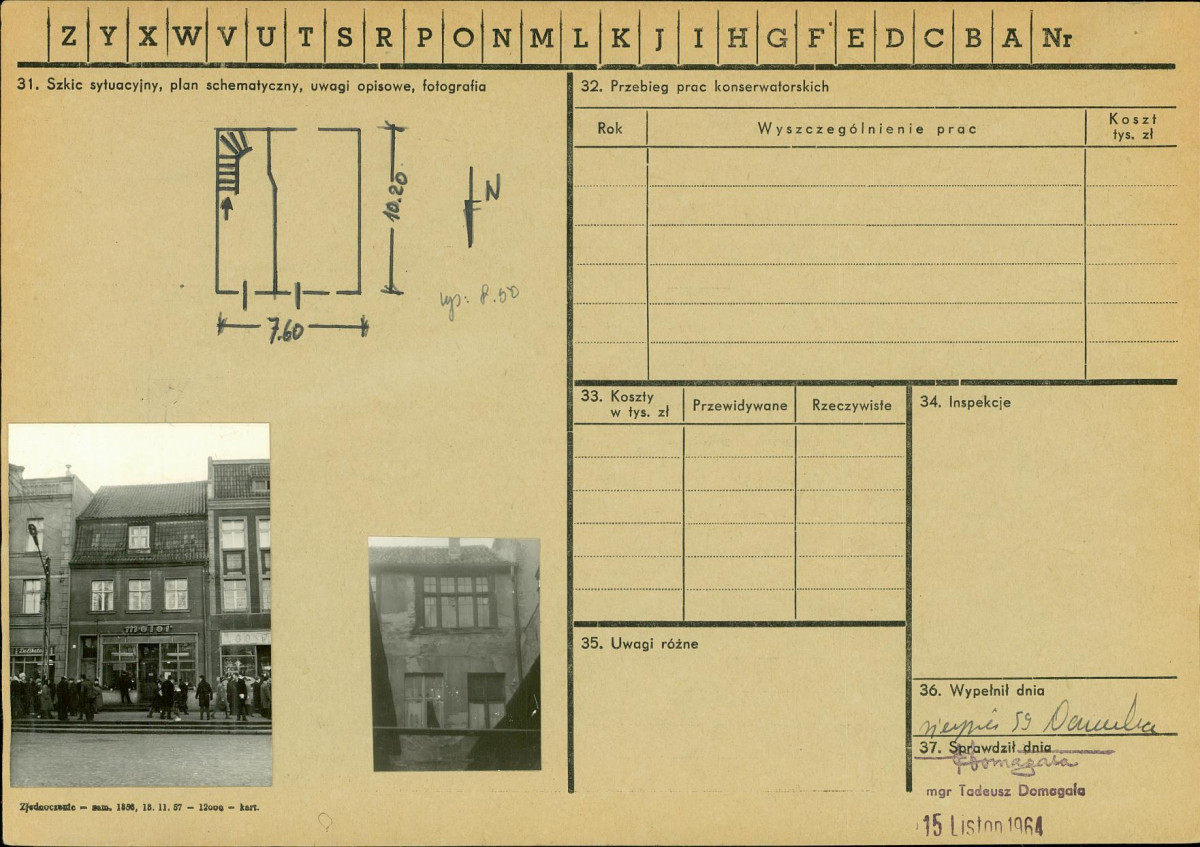 Z Y X W V U T S R P O N M L K J I H G F E D C B A Nr
31. Szkic sytuacyjny, plan schematyczny, uwagi opisowe, fotografia
10.20
N
7.60
wys: 8.50
MOTOR
32. Przebieg prac konserwatorskich
Rok
Wyszczególnienie prac
Koszt
tys. zł
33. Koszty
w tys. zł
Przewidywane
Rzeczywiste
34. Inspekcje
35. Uwagi różne
36. Wypełnił dnia
sierpień 59
37. Sprawdził dnia
TDomagała
mgr Tadeusz Domagała
15 Listop 1964
Zjednoczenie — zam. 1856, 18. 11. 57 — 12000 — kart.